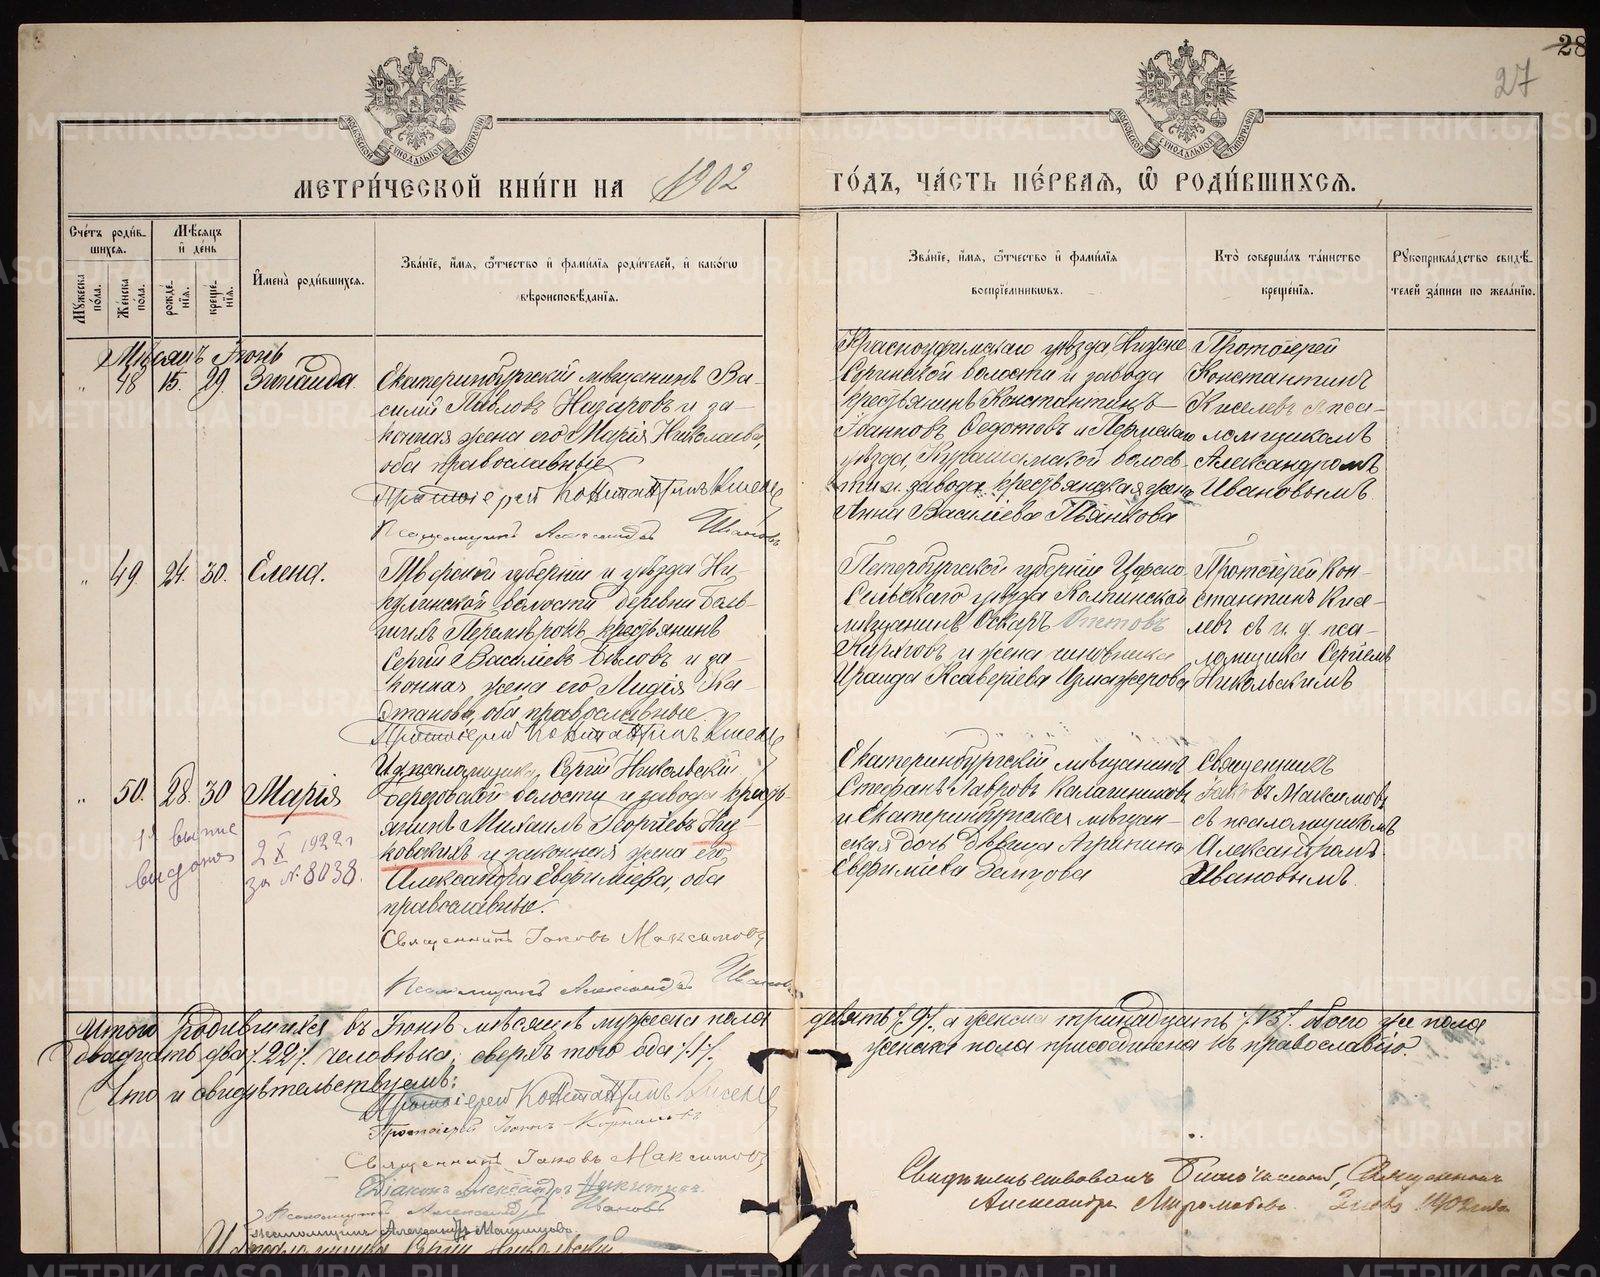 28
27
МЕТРИ́ЧЕСКОЙ КНИ́ГИ НА 1902 ГО́ДЪ, ЧА́СТЬ ПЕ́РВАЯ, Ѿ РОДИ́ВШИХСЯ.
Сче́тъ роди́в-
шихся.
Мꙋжеска по́ла.
Же́нска по́ла.
Мѣ́сяцъ и де́нь
рожде́-
нїя.
креще́-
нїя.
Имена̀ роди́вшихся.
Зва́нїе, и́мя, ѻ́тчество и фами́лїя роди́телей, и како́гѡ
вѣроисповѣ́данїя.
Зва́нїе, и́мя, ѻ́тчество и фами́лїя
воспрїе́мниковъ.
Кто̀ соверша́лъ та́инство
креще́нїя.
Рꙋкоприкла́дство свидѣ́-
телей за́писи по жела́нїю.
Мѣсяцъ Іюнь
„ 48 15. 29. Зинаида
Екатеринбургскій мѣщанинъ Ва-
силій Павловъ Назаровъ и за-
конная жена его Марія Николаева,
оба православные
Протоіерей Константинъ
Псаломщикъ Александръ Ивановъ
Красноуфимскаго уѣзда Нижне
Сергинской волости и завода
крестьянинъ Константинъ
Іоанновъ Федотовъ и Пермскаго
уѣзда, Курашимской волос-
ти и завода, крестьянская жена
Анна Василіева Пьянкова
Протоіерей
Константинъ
Киселевъ с пса-
ломщикомъ
Александромъ
Ивановымъ.
„ 49. 24. 30. Елена.
Тверской губерніи и уѣзда Ни-
кулинской волости деревни Боль-
шихъ Перемѣрокъ крестьянинъ
Сергій Василіевъ Бѣловъ и за-
конная жена его Лидія Ка-
питанова, оба православные.
Протоіерей Константинъ
И. д. псаломщика, Сергій Никольскій
Петербургской губерніи Царско-
Сельскаго уѣзда Колпинской
мѣщанинъ Оскаръ
и жена чиновника
Ираида Ксаверіева
Протоіерей Кон-
стантинъ Кисе-
левъ съ и. д. пса-
ломщика Сергіемъ
Никольскимъ
„ 50. 28. 30 Марія
Березовской волости и завода кресть-
янинъ Михаилъ Георгіевъ
и законная жена его,
Александра Евфиміева, оба
православные.
Священникъ Іаковъ Максимовъ
Псаломщикъ Александръ Ивановъ
Екатеринбургскій мѣщанинъ
Стефанъ Лавровъ Калашниковъ
и Екатеринбургская мѣщан-
ская дочь дѣвица Агрипина
Евфиміева
Священникъ
Іаковъ Максимовъ
съ псаломщикомъ
Александромъ
Ивановымъ.
выдано
2 X 1922 г
за № 8038.
Итого родившихся въ Іюнѣ мѣсяцѣ мужеска пола девять /9/, а женска тринадцать /13/. обоего же пола
двадцать два /22/ человѣка; сверхъ того одна /1/. женска пола присоединена къ православію.
Что и свидѣтельствуемъ:
Протоіерей Константинъ
Протоіерей
Священникъ Іаковъ Максимовъ
Діаконъ Александръ Никитинъ.
Псаломщикъ Александръ Ивановъ
Псаломщикъ Александръ
И. д. псаломщика Сергій Никольскій
Свидѣтельствовалъ Благочинный, Священникъ
Александръ 1902 года
METRIKI.GASO-URAL.RU